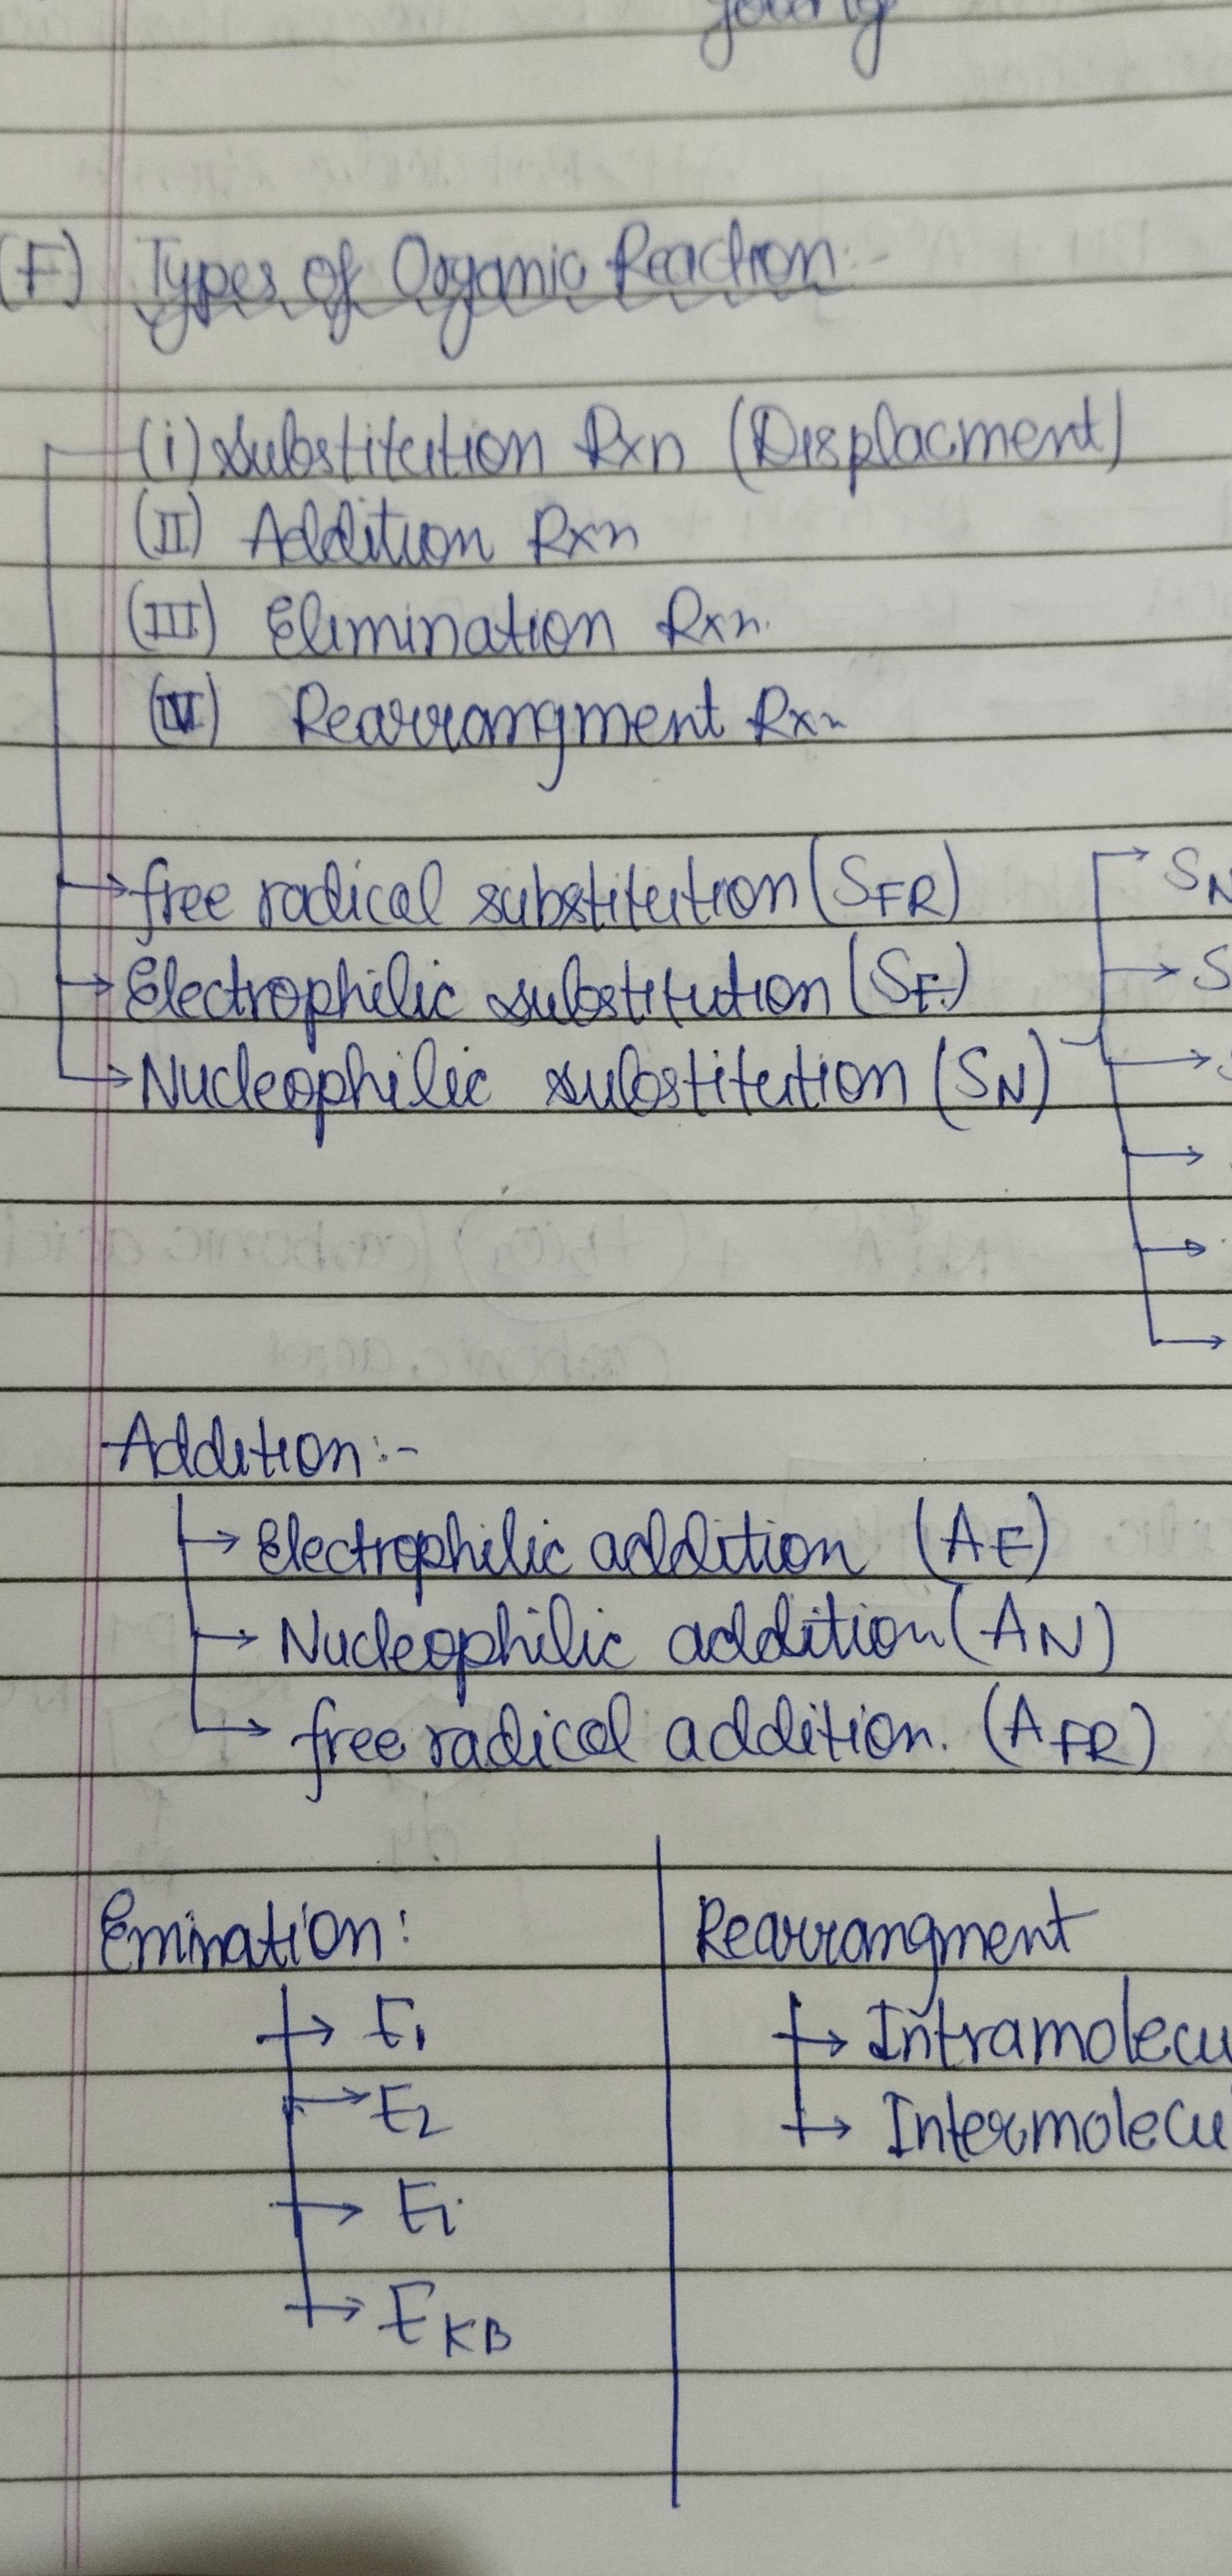 young
(F) Types of Organic Reaction:-
(i) Substitution Rxn (Displacment)
(II) Addition Rxn
(III) Elimination Rxn.
(IV) Rearrangment Rxn
→ free radical substitution (SFR) → SN
→ Electrophilic substitution (SE) → S
→ Nucleophilic substitution (SN) →
→
→
→
Addition:-
→ Electrophilic addition (AE)
→ Nucleophilic addition (AN)
→ free radical addition. (AFR)
Emination: Rearrangment
→ E1 → Intramolecu
→ E2 → Intermolecu
→ Ei
→ EKB